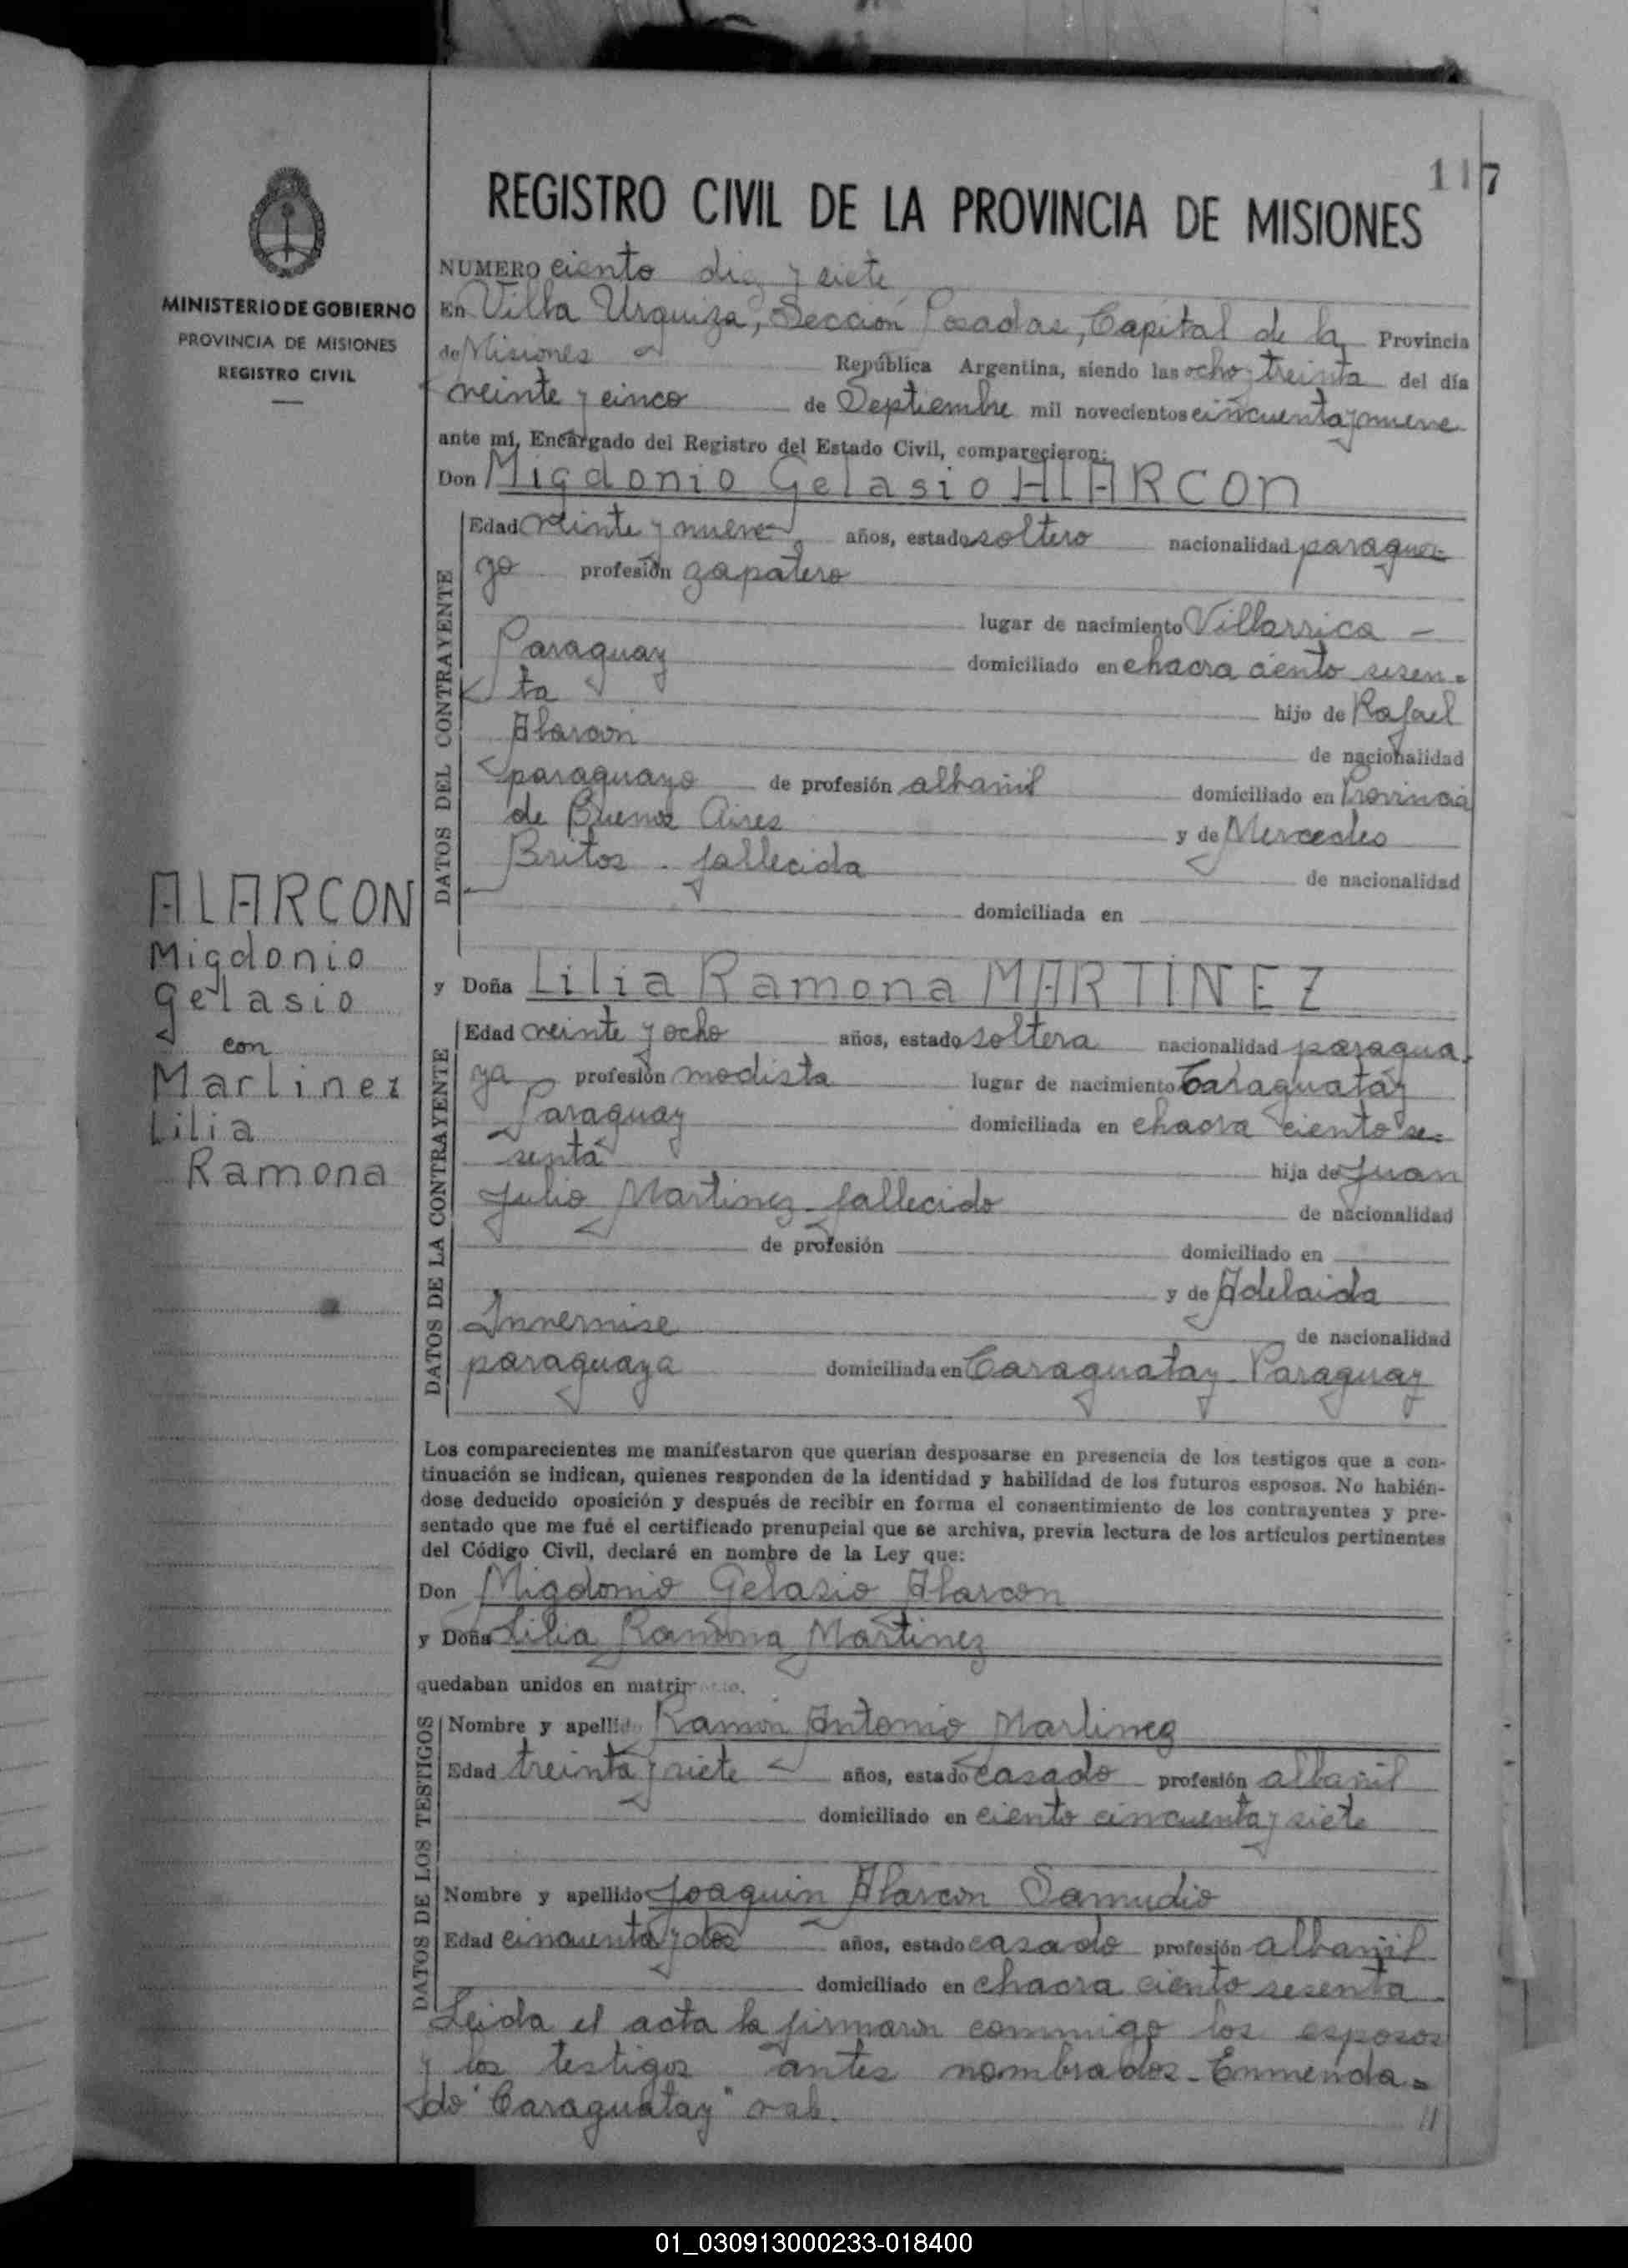 117
REGISTRO CIVIL DE LA PROVINCIA DE MISIONES
MINISTERIO DE GOBIERNO
PROVINCIA DE MISIONES
REGISTRO CIVIL
NUMERO ciento diez y siete
En Villa Urquiza, Sección Posadas, Capital de la Provincia
de Misiones República Argentina, siendo las ocho y treinta del día
veinte y cinco de Septiembre mil novecientos cincuenta y nueve
ante mí, Encargado del Registro del Estado Civil, comparecieron:
Don Migdonio Gelasio ALARCON
DATOS DEL CONTRAYENTE
Edad veinte y nueve años, estado soltero nacionalidad paragua-
yo profesión zapatero
lugar de nacimiento Villarrica -
Paraguay domiciliado en chacra ciento sesen-
ta hijo de Rafael
Alarcon de nacionalidad
paraguayo de profesión albañil domiciliado en Provincia
de Buenos Aires y de Mercedes
Britos - fallecida de nacionalidad
domiciliada en
ALARCON
Migdonio
Gelasio
con
Martinez
Lilia
Ramona
y Doña Lilia Ramona MARTINEZ
DATOS DE LA CONTRAYENTE
Edad veinte y ocho años, estado soltera nacionalidad paragua-
ya profesión modista lugar de nacimiento Caraguatay
Paraguay domiciliada en chacra ciento se-
senta hija de Juan
Julio Martinez - fallecido de nacionalidad
de profesión domiciliado en
y de Adelaida
de nacionalidad
paraguaya domiciliada en Caraguatay - Paraguay
Los comparecientes me manifestaron que querían desposarse en presencia de los testigos que a con-
tinuación se indican, quienes responden de la identidad y habilidad de los futuros esposos. No habién-
dose deducido oposición y después de recibir en forma el consentimiento de los contrayentes y pre-
sentado que me fué el certificado prenupcial que se archiva, previa lectura de los artículos pertinentes
del Código Civil, declaré en nombre de la Ley que:
Don Migdonio Gelasio Alarcon
y Doña Lilia Ramona Martinez
quedaban unidos en matrimonio.
DATOS DE LOS TESTIGOS
Nombre y apellido Ramón Antonio Martinez
Edad treinta y siete años, estado casado profesión albañil
domiciliado en ciento cincuenta y siete
Nombre y apellido Joaquin Alarcon Samudio
Edad cincuenta y dos años, estado casado profesión albañil
domiciliado en chacra ciento sesenta
Leida el acta la firmaron conmigo los esposos
y los testigos antes nombrados - Enmenda-
do "Caraguatay" vale.
01_030913000233-018400